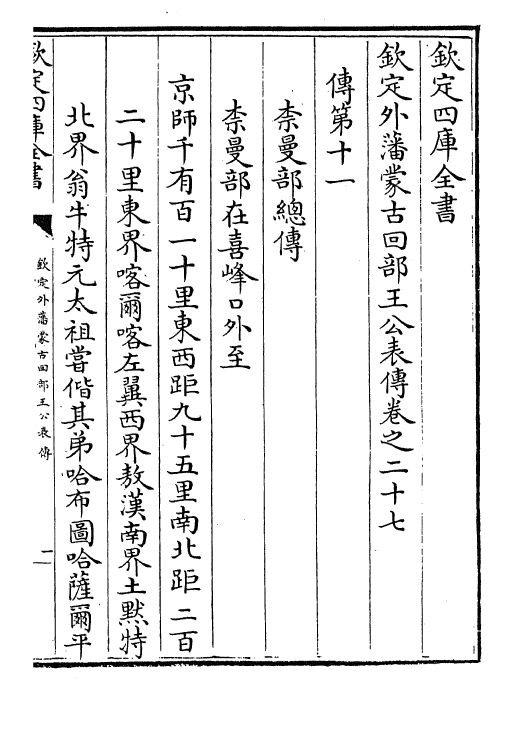 欽定四庫全書
欽定外藩蒙古回部王公表傳卷之二十七
傳第十一
柰曼部總傳
柰曼部在喜峰口外至
京師千有百一十里東西距九十五里南北距二百
二十里東界喀爾喀左翼西界敖漢南界土黙特
北界翁牛特元太祖嘗偕其弟哈布圖哈薩爾平
欽定四庫全書
欽定外藩蒙古回部王公表傳
一